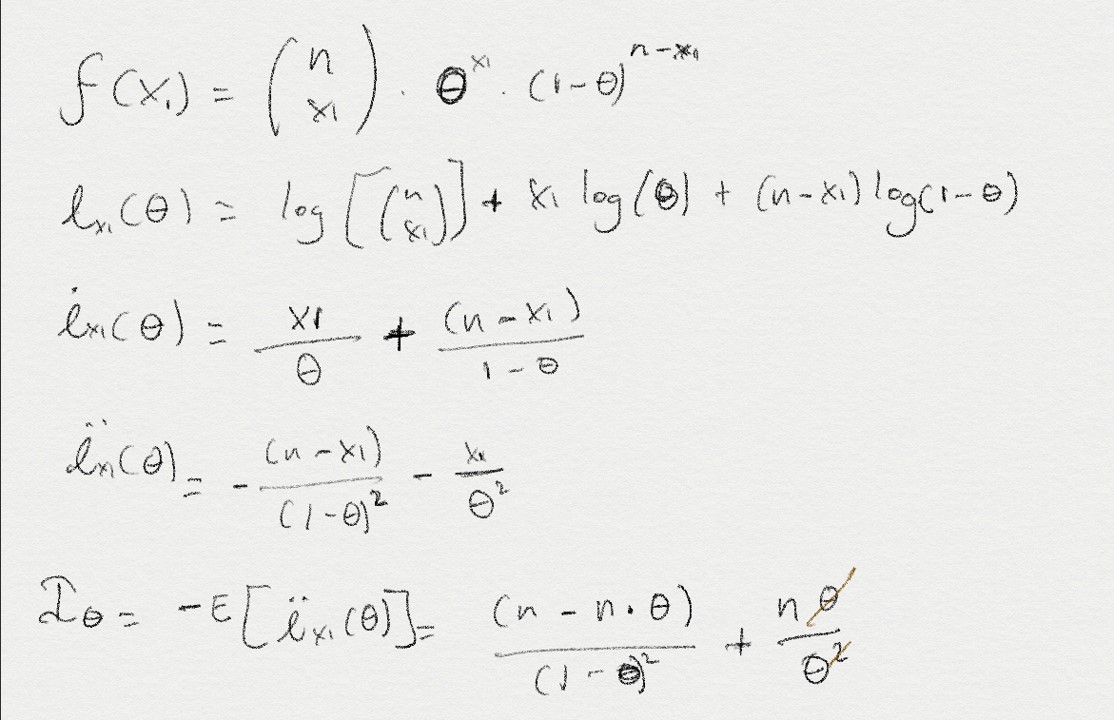 f(x₁) = (n x₁) · θ^x₁ · (1-θ)^n-x₁
lx₁(θ) = log[(n x₁)] + x₁ log(θ) + (n-x₁) log(1-θ)
l̇x₁(θ) = x₁/θ + (n-x₁)/1-θ
l̈x₁(θ) = - (n-x₁)/(1-θ)² - x₁/θ²
Iθ = -E[l̈x₁(θ)] = (n - n·θ)/(1-θ)² + nθ/θ²